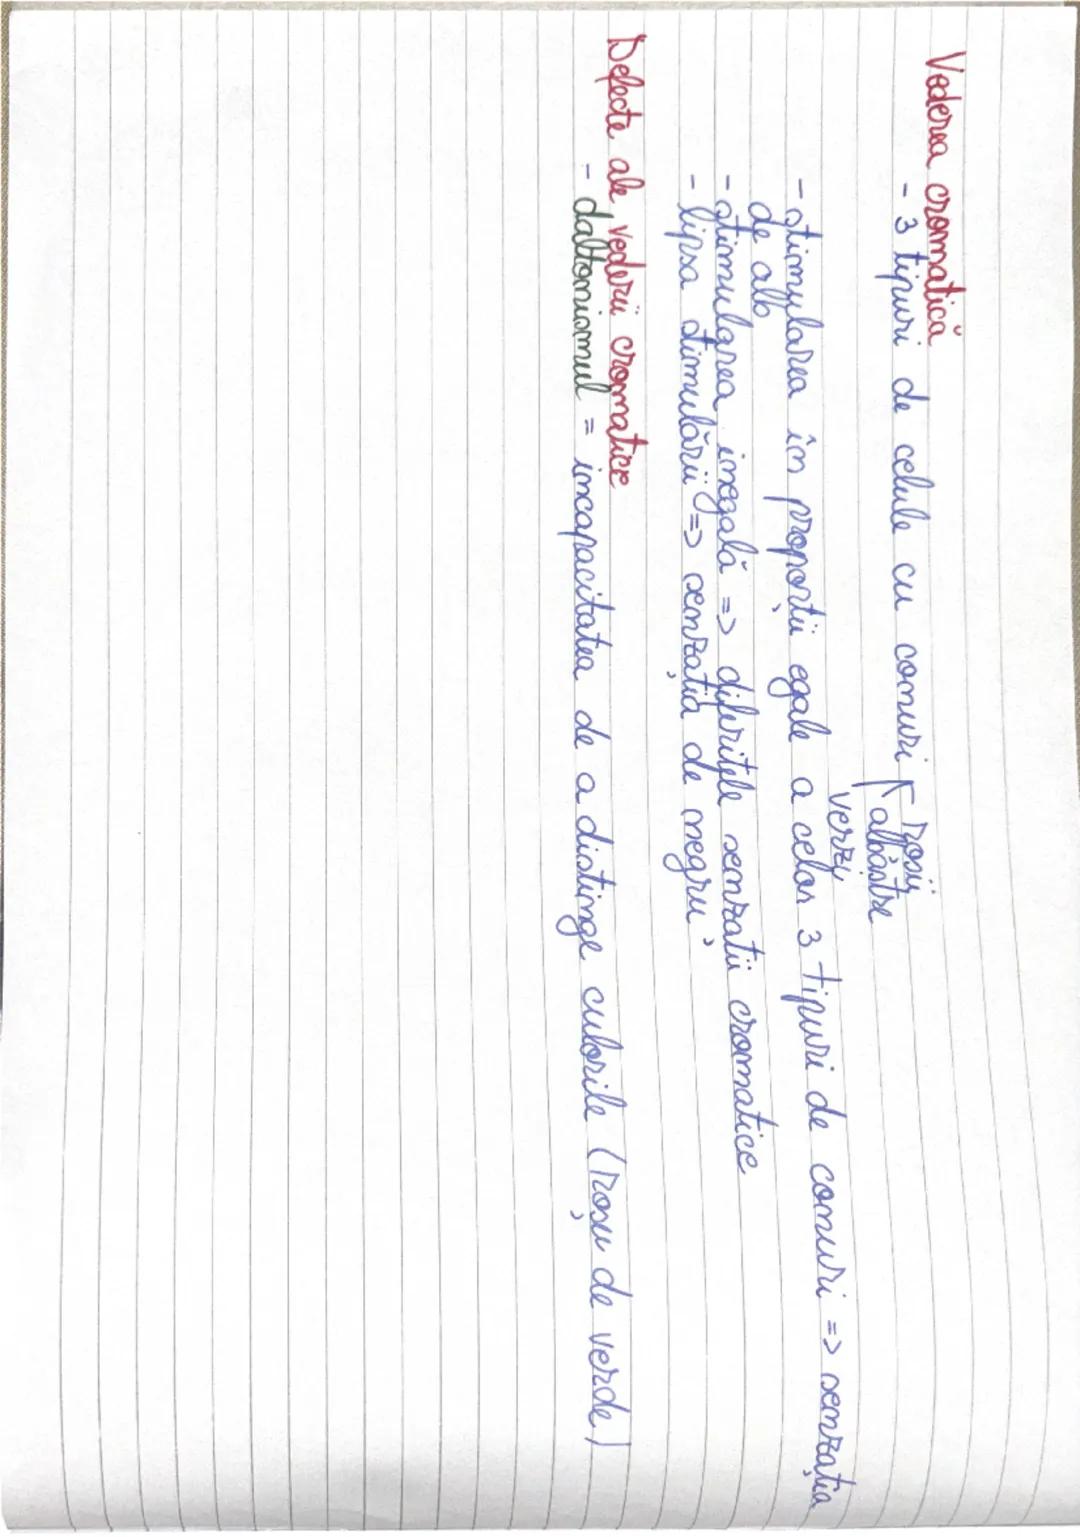 Vederea cromatică
- 3 tipuri de celule cu conuri roșii
albastre
verzi
- stimularea în proporții egale a celor 3 tipuri de conuri => senzația
de alb
- stimularea inegală => diferitele senzații cromatice
- lipsa stimulării => senzația de negru
Defecte ale vederii cromatice
- daltonismul = incapacitatea de a distinge culorile (roșu de verde)